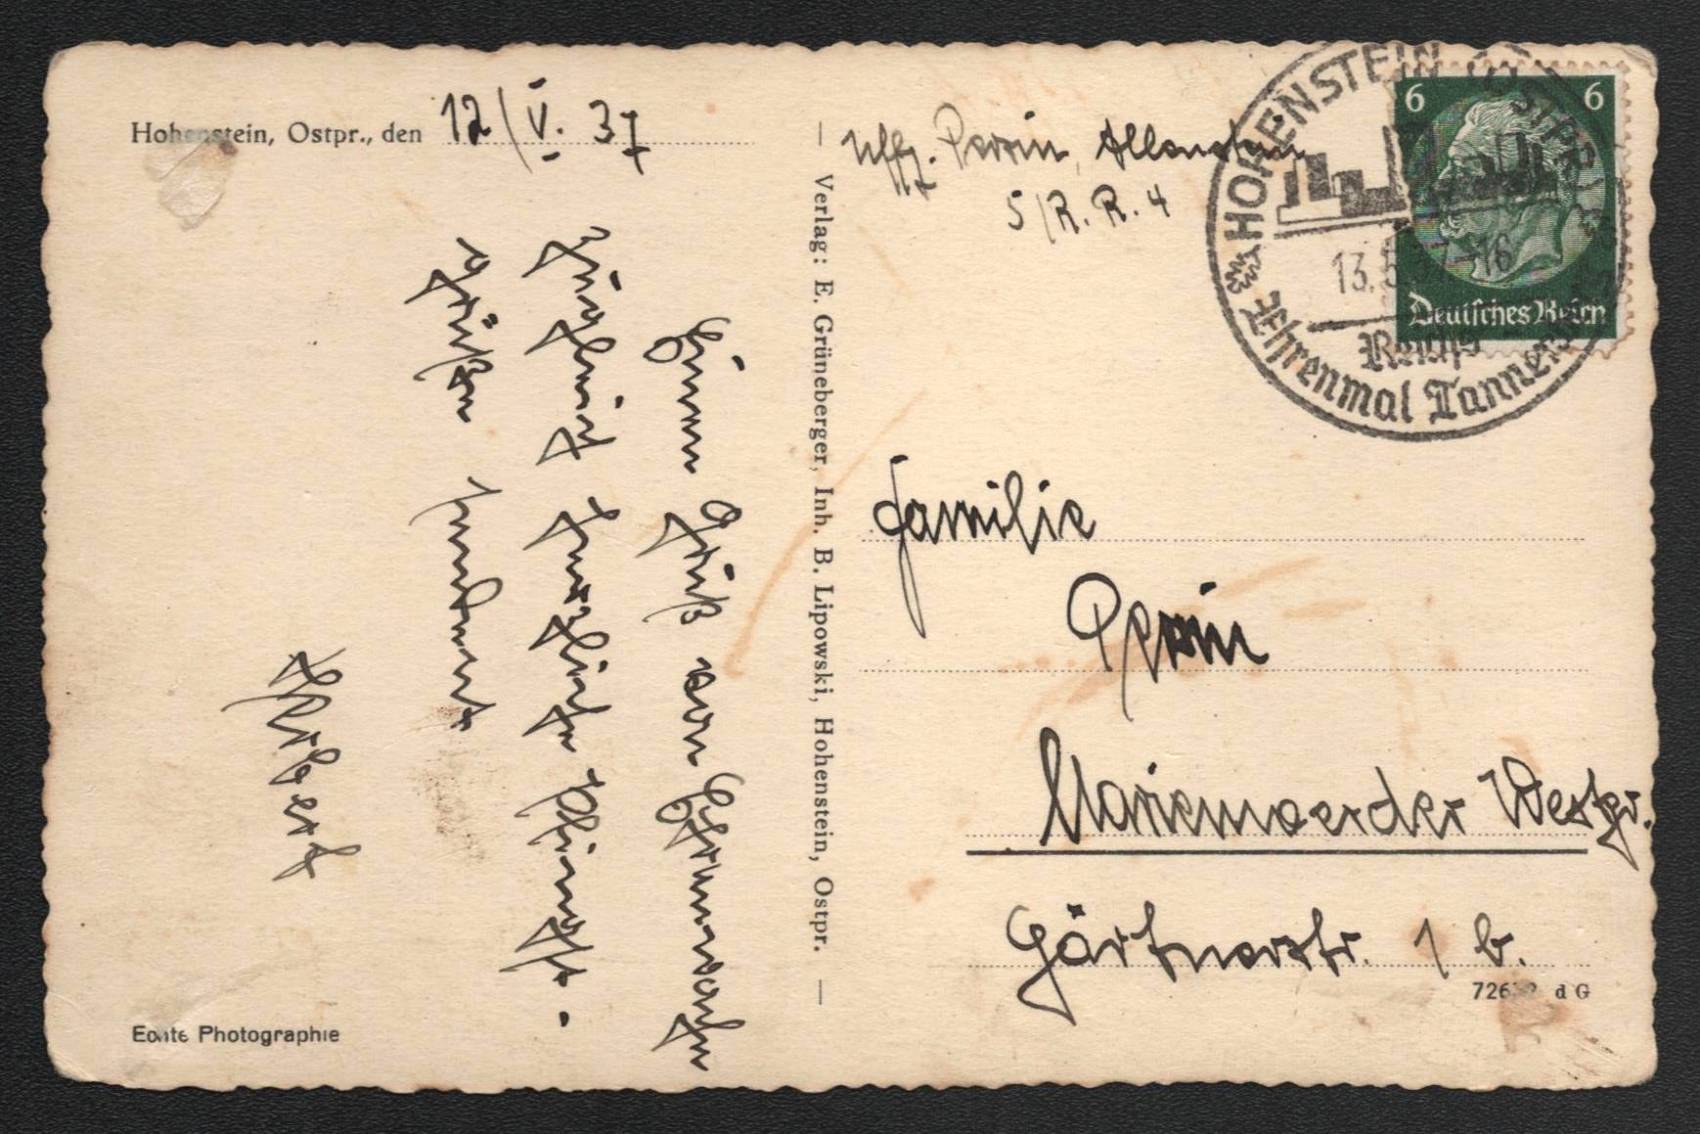 Hohenstein, Ostpr., den 12/V. 37
Einen Gruß von Ehrenwache
zugleich herzliche Pfingst-
grüße sendet
Herbert
Echte Photographie
— Verlag: E. Grüneberger, Inh. B. Lipowski, Hohenstein, Ostpr. —
Uffz. Perrin, Allenstein
5/R. R. 4
HOHENSTEIN (OSTPR)
13.5.37-16
Reichs
Ehrenmal Tannenberg
6 6
Deutsches Reich
Familie
Perrin
Marienwerder Westpr.
Gärtnerstr. 1 b.
d G